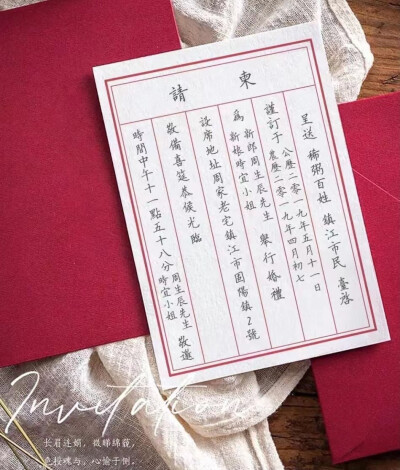 請柬
呈送 稀粥百姓 鎮江市民 臺啓
謹訂于
公歷二零一九年五月十一日
農歷二零一九年四月初七
為
新郎周生辰先生
新娘時宜小姐
舉行婚禮
設席地址周家老宅鎮江市國陽鎮2號
敬備喜筵恭候光臨
時間中午十一點五十八分
周生辰先生
時宜小姐
敬邀
Invitation
长眉连娟,微睇绵藐,
色授魂与,心愉于侧。